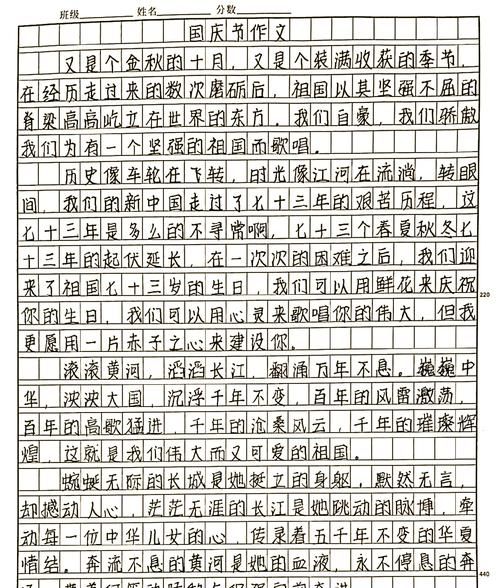 班级 姓名 分数
国庆节作文
又是个金秋的十月，又是个装满收获的季节，
在经历走过来的数次磨砺后，祖国以其坚强不屈的
脊梁高高屹立在世界的东方，我们自豪，我们骄傲
我们为有一个坚强的祖国而歌唱。
历史像车轮在飞转，时光像江河在流淌，转眼
间，我们的新中国走过了七十三年的艰苦历程，这
七十三年是多么的不寻常啊，七十三个春夏秋冬七
十三年的起伏延长，在一次次的困难之后，我们迎
来了祖国七十三岁的生日，我们可以用鲜花来庆祝
220
你的生日，我们可以用心灵来歌唱你的伟大，但我
更愿用一片赤子之心来建设你。
滚滚黄河，滔滔长江，翻涌万年不息。巍巍中
华，泱泱大国，沉浮千年不变，百年的风雷激荡，
百年的高歌猛进，千年的沧桑风云，千年的璀璨辉
煌，这就是我们伟大而又可爱的祖国。
蜿蜒无际的长城是她挺立的身躯，默然无言，
却撼动人心，茫茫无涯的长江是她跳动的脉搏，牵
动每一位中华儿女的心，传录着五千年不变的华夏
情结。奔流不息的黄河是她的血液，永不停息的奔
440